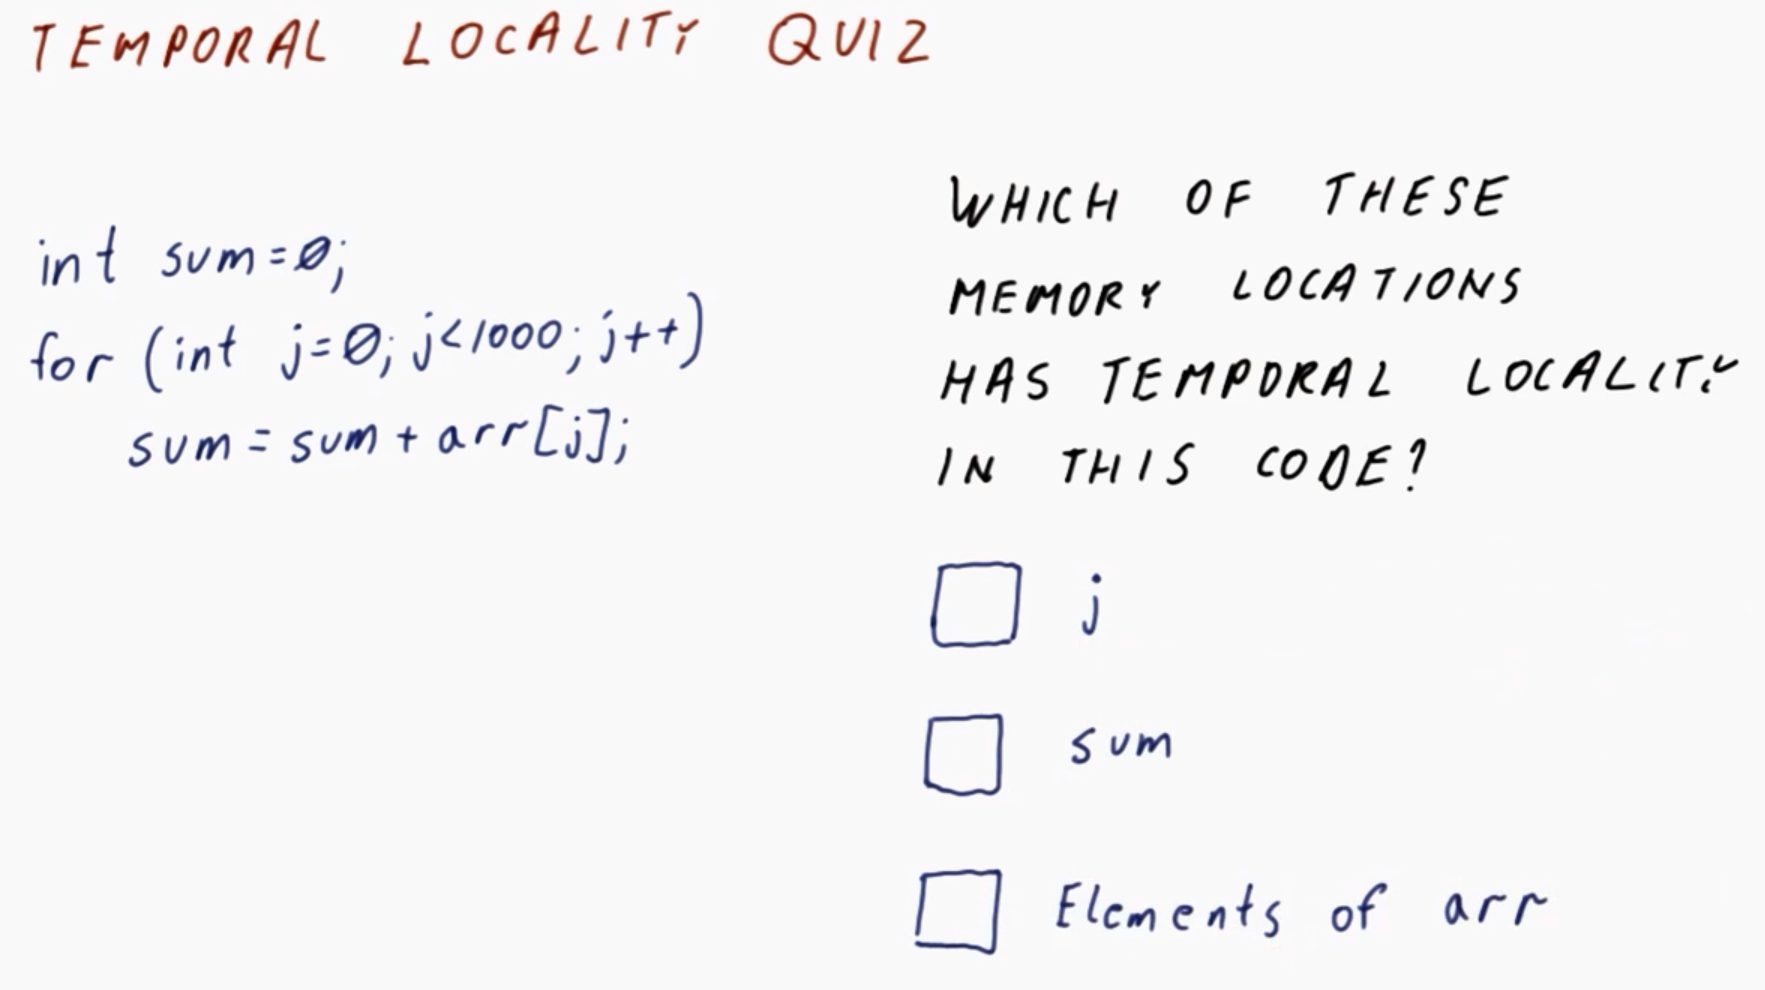 TEMPORAL LOCALITY QUIZ
int sum=0;
for (int j=0; j<1000; j++)
sum = sum + arr[j];
WHICH OF THESE
MEMORY LOCATIONS
HAS TEMPORAL LOCALITY
IN THIS CODE?
j
sum
Elements of arr